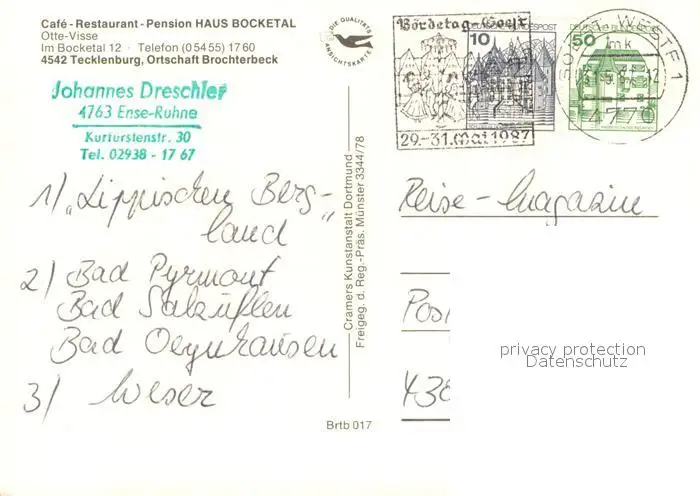 Café - Restaurant - Pension HAUS BOCKETAL
Otte-Visse
Im Bocketal 12 · Telefon (0 54 55) 17 60
4542 Tecklenburg, Ortschaft Brochterbeck
Johannes Dreschler
4763 Ense-Ruhne
Kurfürstenstr. 30
Tel. 02938 - 17 67
DIE QUALITÄTS
ANSICHTSKARTE
Bördetag Soest
29.-31. Mai 1987
10
DEUTSCHE BUNDESPOST
50
SOEST, WESTF 1
mk
4770
1) "Lippischen Berg-
land"
2) Bad Pyrmont
Bad Salzuflen
Bad Oeynhausen
3) Weser
Cramers Kunstanstalt Dortmund
Freigeg. d. Reg.-Präs. Münster 3344/78
Brtb 017
Reise-Magazin
Pos
43
privacy protection
Datenschutz